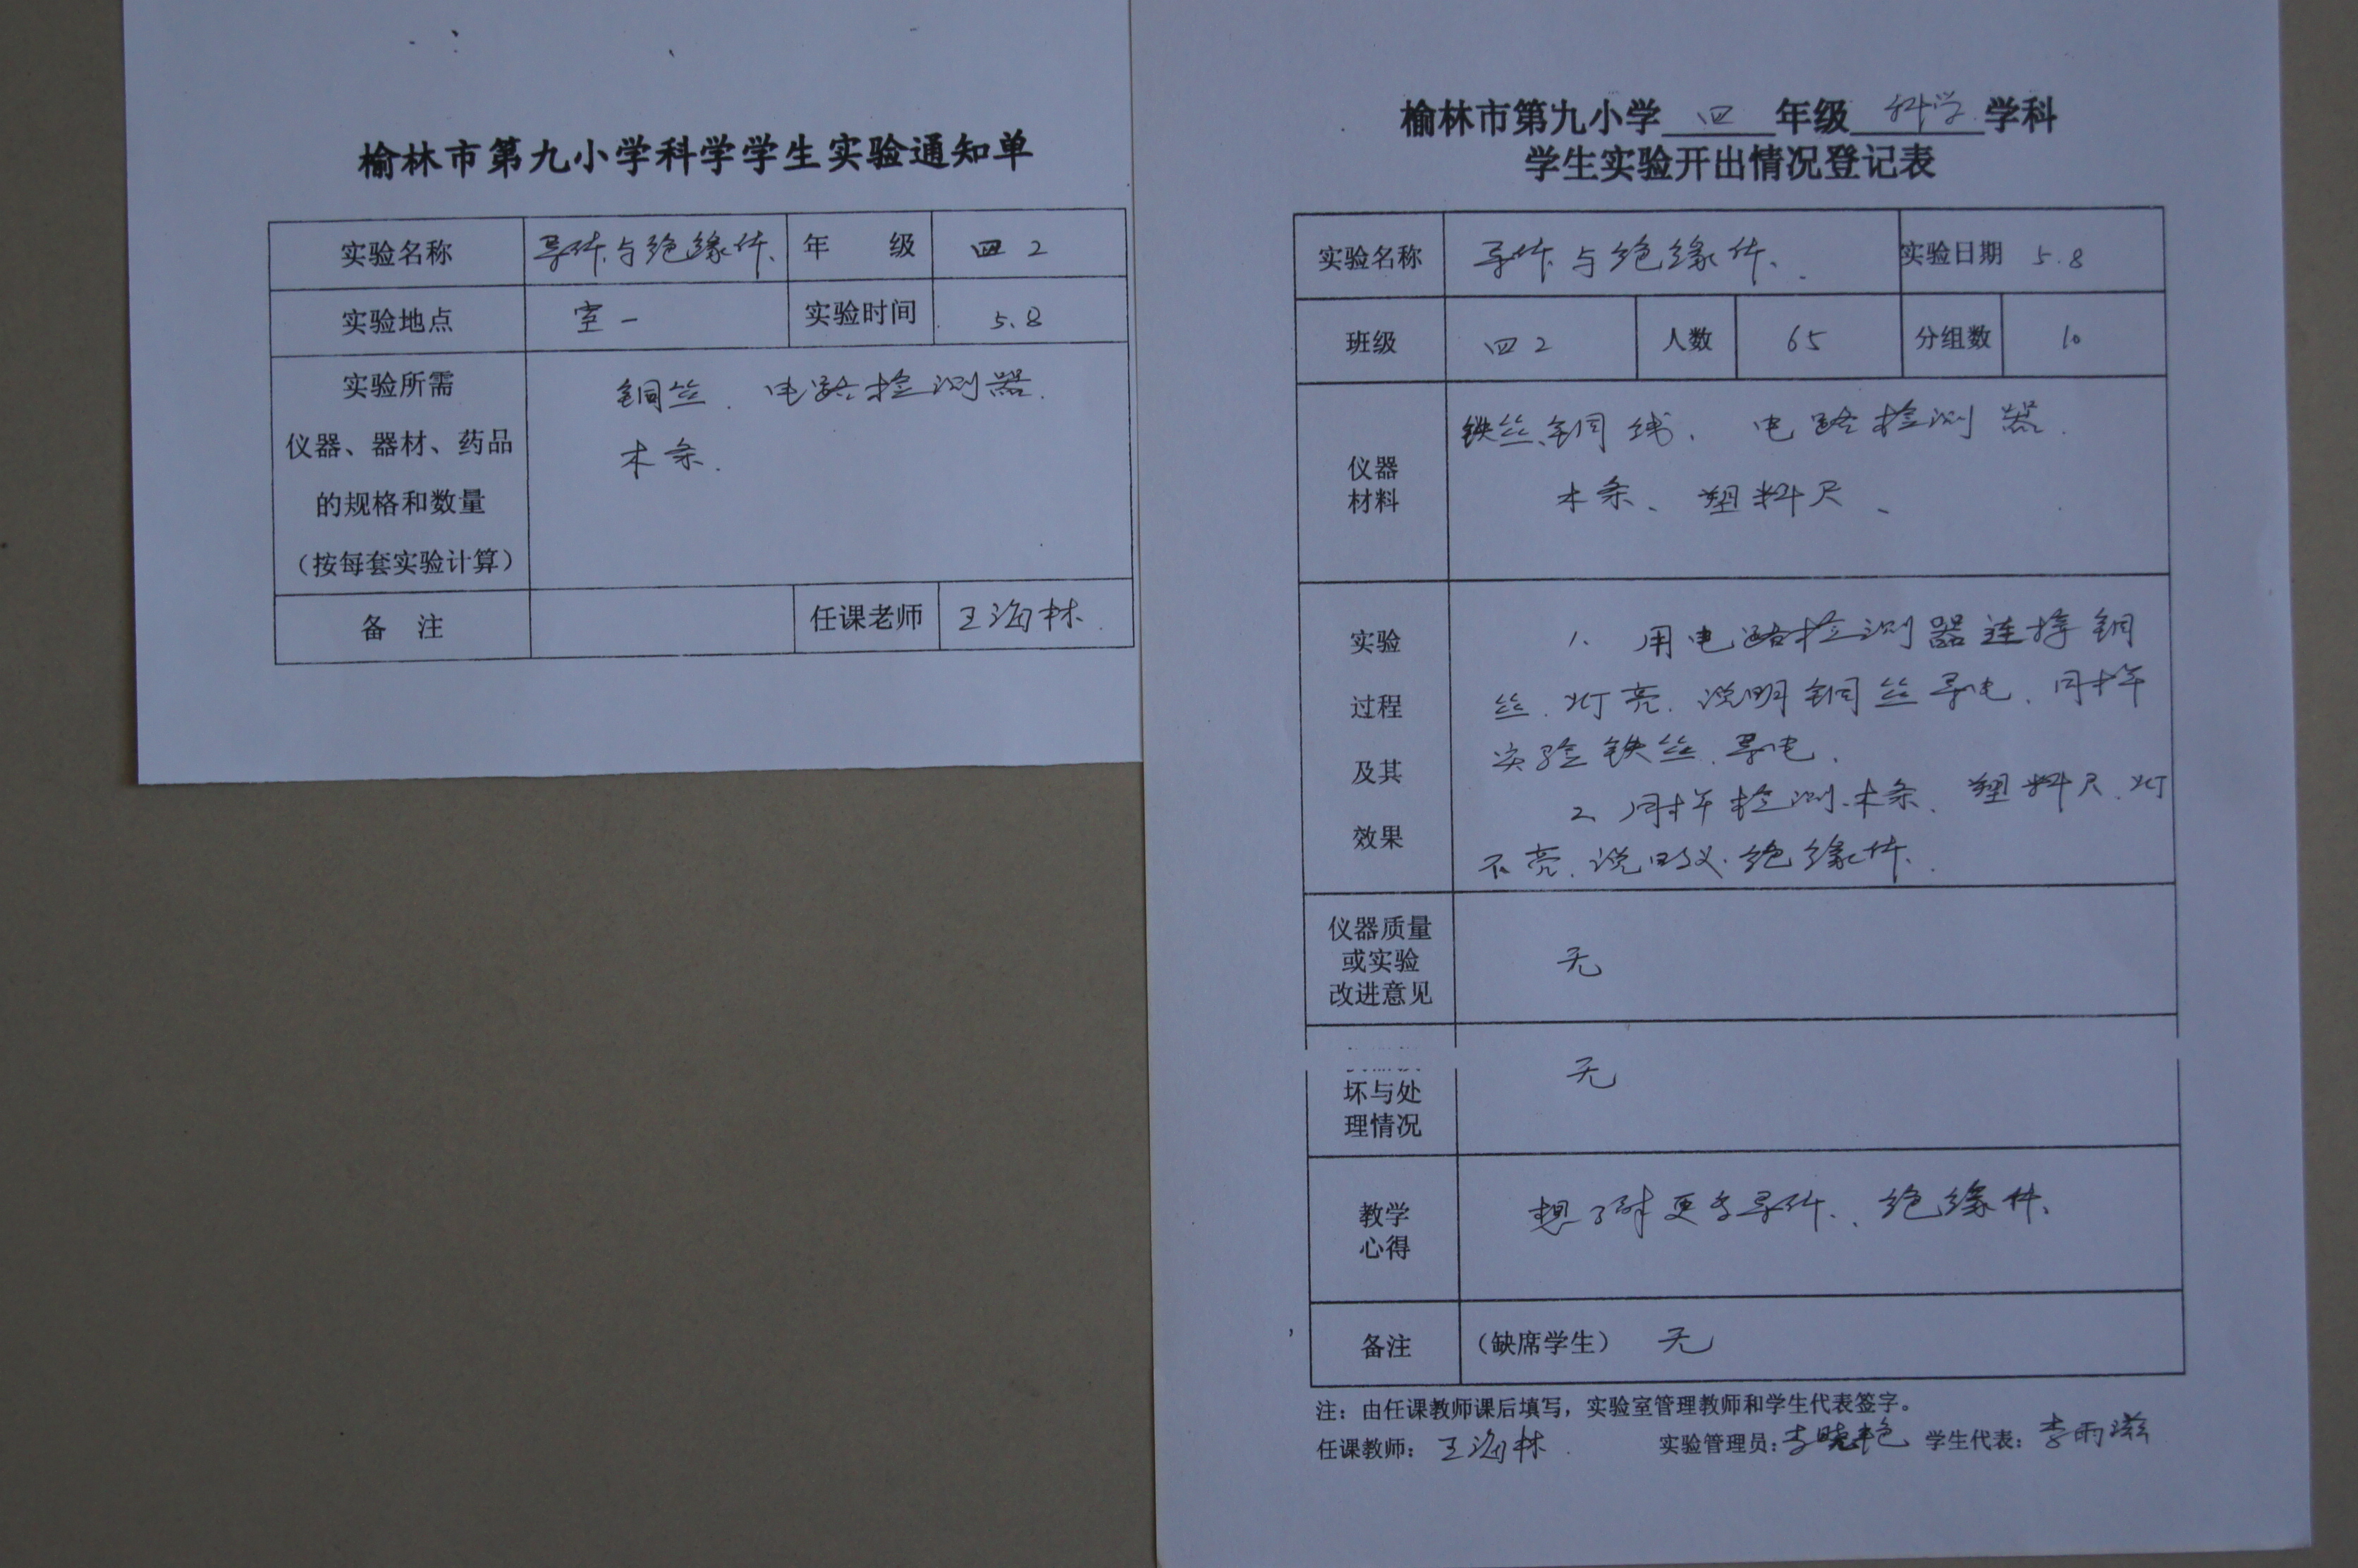 榆林市第九小学科学学生实验通知单
实验名称 导体与绝缘体、 年 级 四2
实验地点 室一 实验时间 5.8
实验所需
仪器、器材、药品
的规格和数量
（按每套实验计算）
铜丝、电路检测器、
木条、
备 注 任课老师 王海林
榆林市第九小学 四 年级 科学 学科
学生实验开出情况登记表
实验名称 导体与绝缘体、 实验日期 5.8
班级 四2 人数 65 分组数 10
仪器
材料
铁丝、铜线、电路检测器、
木条、塑料尺、
实验
过程
及其
效果
1、用电路检测器连接铜
丝、灯亮、说明铜丝导电、同样
实验铁丝、导电、
2、同样检测木条、塑料尺、灯
不亮、说明义绝缘体、
仪器质量
或实验
改进意见
无
坏与处
理情况
无
教学
心得
想了解更多导体、绝缘体、
备注 （缺席学生） 无
注：由任课教师课后填写，实验室管理教师和学生代表签字。
任课教师：王海林 实验管理员：李晓艳 学生代表：李雨滋